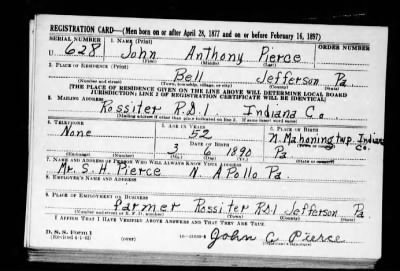 REGISTRATION CARD—(Men born on or after April 28, 1877 and on or before February 16, 1897)
SERIAL NUMBER 1. NAME (Print) ORDER NUMBER
U 628 John Anthony Pierce
(First) (Middle) (Last)
2. PLACE OF RESIDENCE (Print)
Bell Jefferson Pa.
(Number and street) (Town, township, village, or city) (County) (State)
[THE PLACE OF RESIDENCE GIVEN ON THE LINE ABOVE WILL DETERMINE LOCAL BOARD
JURISDICTION; LINE 2 OF REGISTRATION CERTIFICATE WILL BE IDENTICAL]
3. MAILING ADDRESS
Rossiter R.D.1 Indiana Co
[Mailing address if other than place indicated on line 2. If same insert word same]
4. TELEPHONE 5. AGE IN YEARS 6. PLACE OF BIRTH
None 52 N. Mahoning twp. Indiana
DATE OF BIRTH (Town or county) Co.
3 6 1890 Pa
(Exchange) (Number) (Mo.) (Day) (Yr.) (State or country)
7. NAME AND ADDRESS OF PERSON WHO WILL ALWAYS KNOW YOUR ADDRESS
Mr. S. H. Pierce N. Apollo Pa.
8. EMPLOYER'S NAME AND ADDRESS
9. PLACE OF EMPLOYMENT OR BUSINESS
Farmer Rossiter R.D.1 Jefferson Pa
(Number and street or R. F. D. number) (Town) (County) (State)
I AFFIRM THAT I HAVE VERIFIED ABOVE ANSWERS AND THAT THEY ARE TRUE.
D. S. S. Form 1
(Revised 4-1-42) (over)
John A Pierce